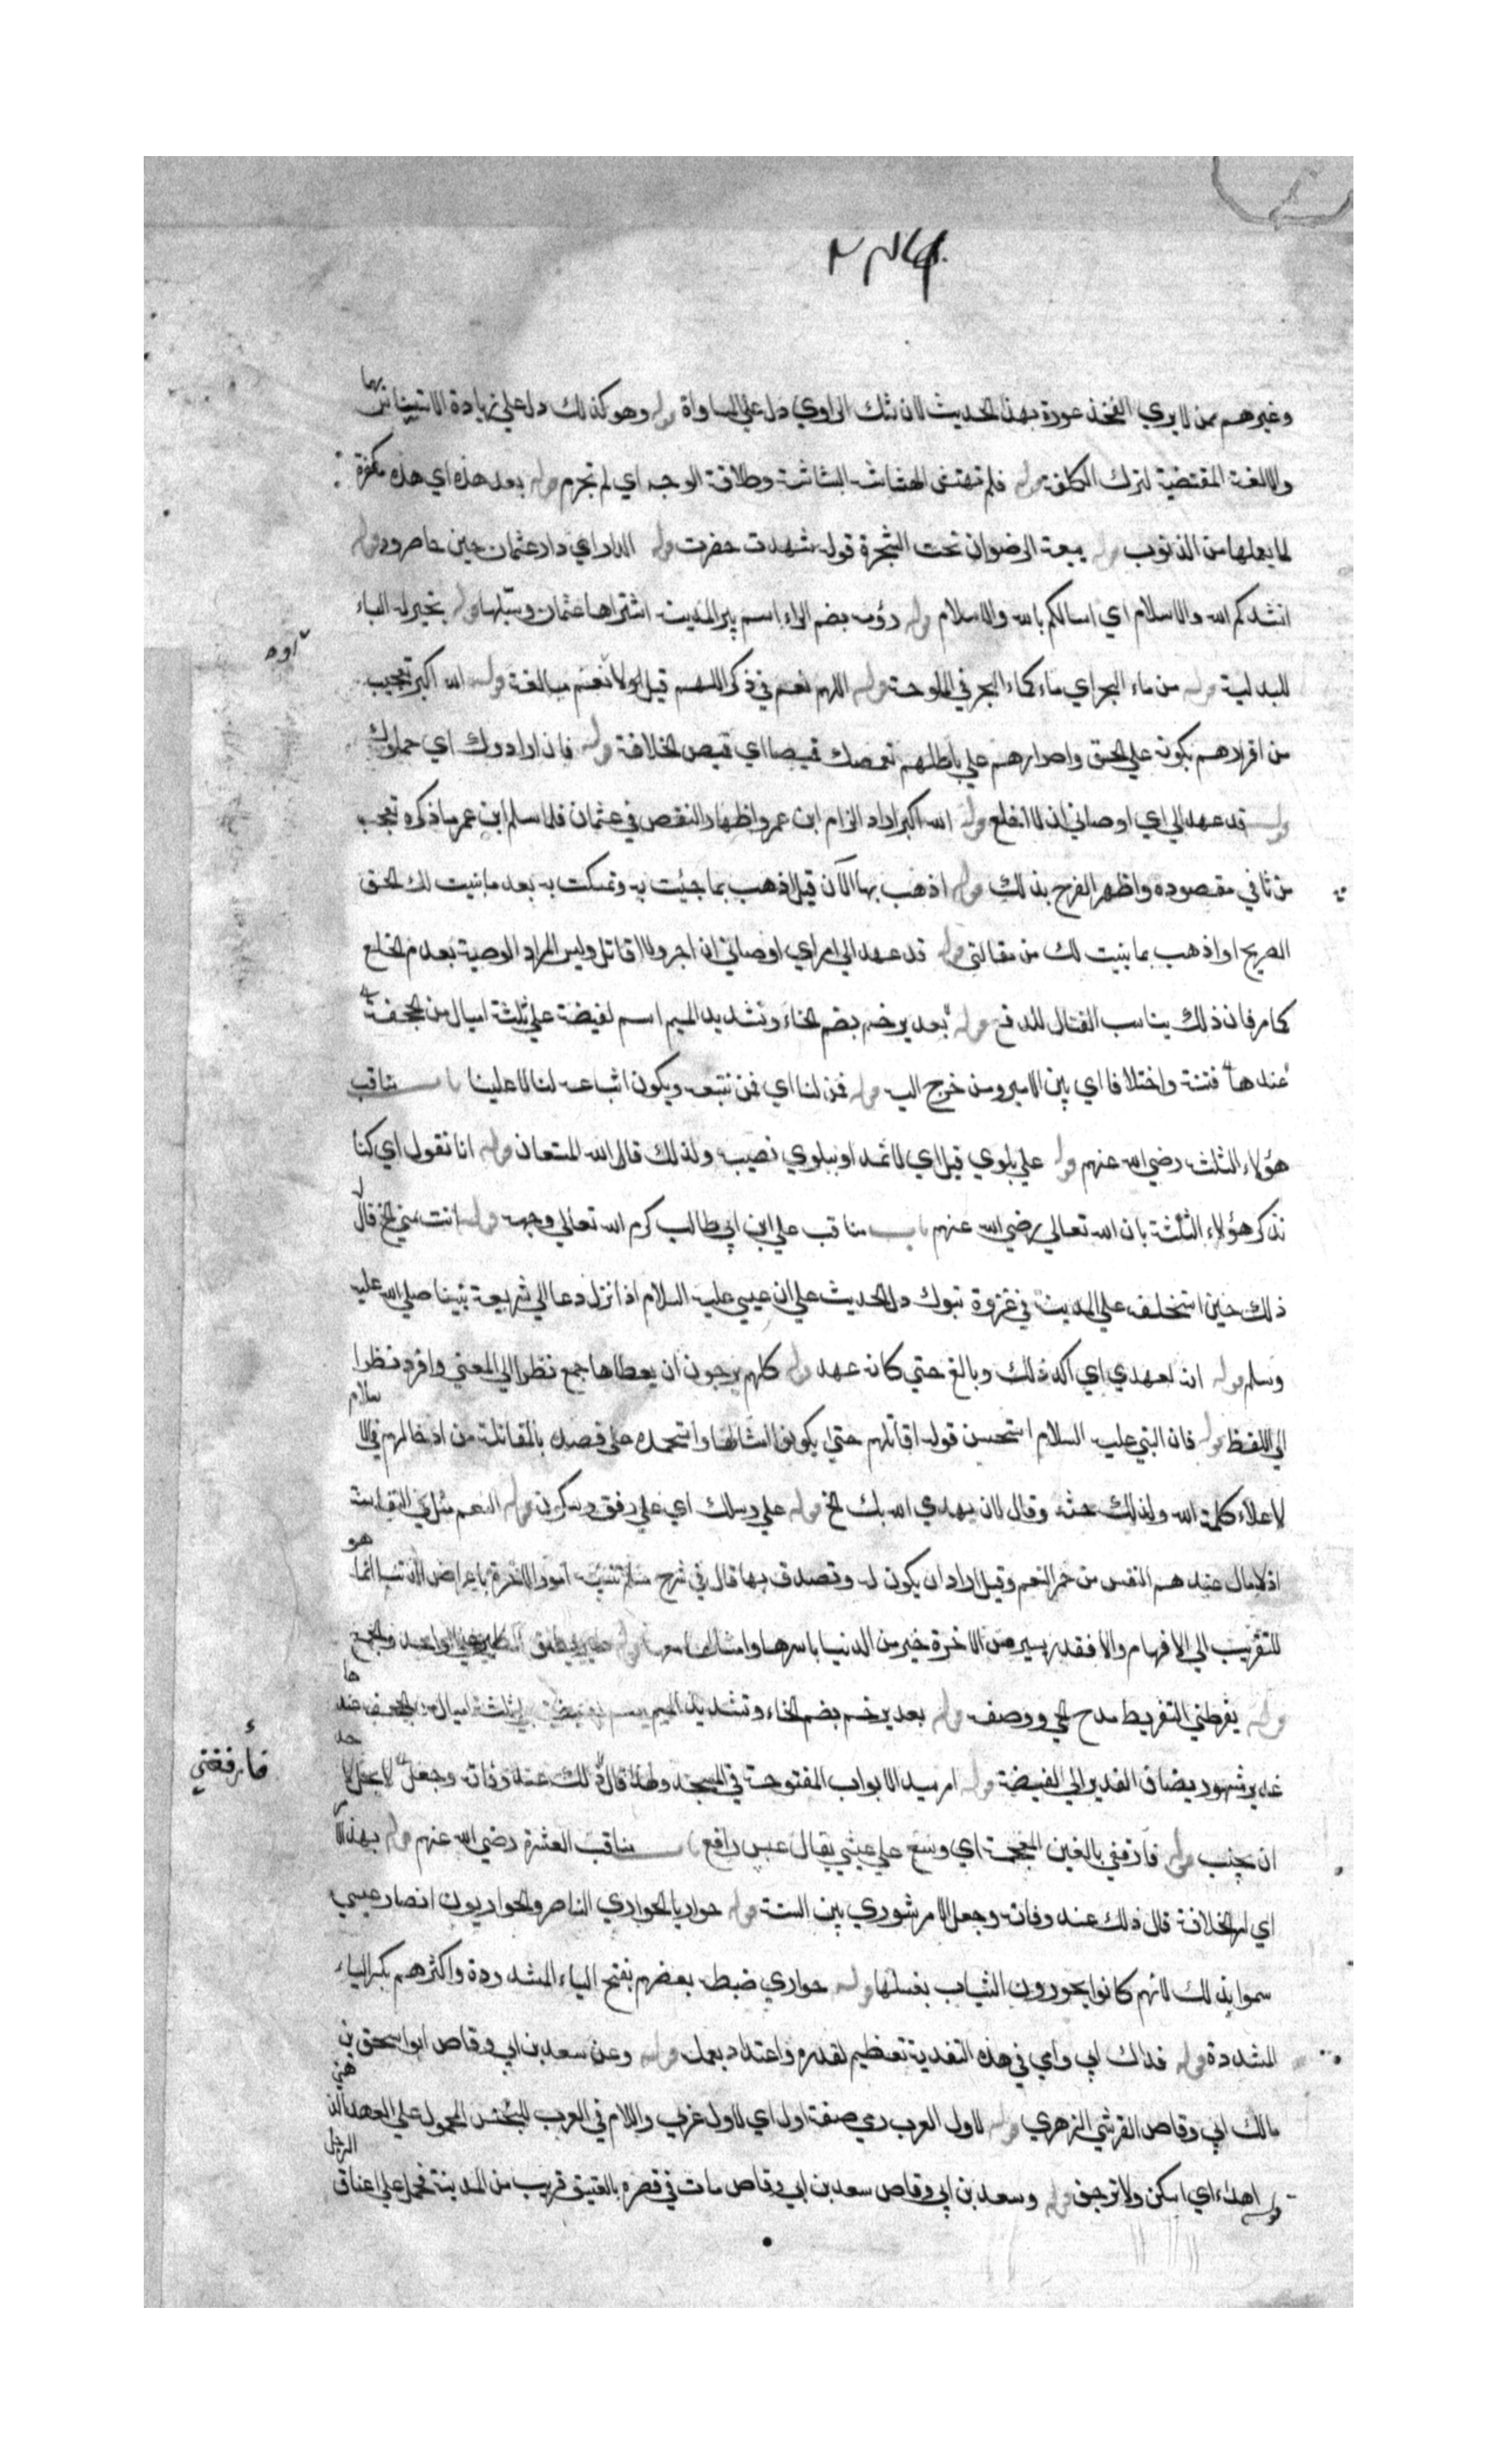 وغيرهم ممن لا يري الفخذ عورة بهذا الحديث لان شك الراوي دل علي المساواة قوله وهو كذلك دل علي زيادة الاستيناس بهما
والالفة المقتضية لترك الكلفة قوله فلم تهتش الهشاشة البشاشة وطلاقة الوجه اي لم تجرم قوله بعد هذه اي هذه مكفرة
لما بعدها من الذنوب قوله بيعة الرضوان تحت الشجرة قوله شهدت حضرت قوله الدار اي دار عثمان حين حاصروه قوله
انشدكم الله والاسلام اي اسالكم بالله والاسلام قوله رؤمه بضم الراء اسم بير المدينة اشتراها عثمان وسبلها قوله بخير له الباء
للبدلية قوله من ماء البحر اي ماء كماء البحر في الملوحة قوله اللهم نعم في ذكر اللهم قبل لا و نعم مبالغة قوله الله اكبر تعجب
من اقرارهم بكونه علي الحق واصرارهم علي باطلهم تعمصك قميصا اي قميص الخلافة قوله فان ارادوك اي حملوك
قوله قد عهد الي اي اوصاني ان لا انخلع قوله الله اكبر اراد الزام ابن عمر واظهار النقص في عثمان فلما سلم ابن عمر ما ذكره تعجب
من تاني مقصوده واظهر الفرح بذلك قوله اذهب بها الآن قيل اذهب بما جيئت به وتمسكت به بعد ما بنيت لك الحق
الصريح او اذهب بما بنيت لك من مقالتي قوله قد عهد الي امرا اي اوصاني ان اصبر ولا اقاتل وليس المراد الوصية بعدم الخلع
كما مر فان ذلك يناسب القتال للدفع قوله بعد يرخم بضم الخاء وتشديد الميم اسم لغيضة علي ثلثة اميال من الجحفة
عندها فتنة واختلافا اي بين الامير ومن خرج اليه قوله فمن لنا اي فمن نتبعه ويكون اتباعه لنا لا علينا باب مناقب
هؤلاء الثلثة رضي الله عنهم قوله علي بلوي قيل اي لاتمد او ببلوي نصيبه ولذلك قال الله المستعان قوله انا نقول اي كنا
نذكر هؤلاء الثلثة بان الله تعالي رضي الله عنهم باب مناقب علي ابن ابي طالب كرم الله تعالي وجهه قوله انت مني الخ قال
ذلك حين استخلفه علي المدينة في غزوة تبوك دل الحديث علي ان عيسي عليه السلام اذا نزل دعا الي شريعة نبينا صلي الله عليه
وسلم قوله انه لعهدي اي اكد ذلك وبالغ حتي كانه عهد قوله كلهم يرجون ان يعطاها جمع نظرا الي المعني وافرد نظرا
الي اللفظ قوله فان النبي عليه السلام استحسن قوله اقاتلهم حتي يكونوا امثالنا واستحمده علي قصده بالمقاتلة من ادخالهم في الا سلام
لاعلاء كلمة الله ولذلك حثه وقال لان يهدي الله بك الخ قوله علي رسلك اي علي رفق وسكون قوله النعم مثل في النفاسة
اذ لا مال عندهم انفس من حمر النعم وقيل اراد ان يكون له وتصدق بها قال في شرح مسلم تشبيه امور الاخرة باعراض الدنيا انما هو
للتقريب الي الافهام والا فقدر يسير من الاخرة خير من الدنيا باسرها وامثالها معها قوله طير يطلق الطير علي الواحد والجمع
قوله يقرظني التقريظ مدح الحي ووصفه قوله بعد يرخم بضم الخاء وتشديد الميم اسم لغيضة علي ثلثة اميال من الجحفة عندها
غدير مشهور يضاف الغدير الي الغيضة قوله امر بسد الابواب المفتوحة في المسجد ولما قال ذلك عند وفاته وجعل لا يحل لاحد
ان يجنب قوله فارفغني بالغين المعجمة اي وسع علي عيشي يقال عيش رافغ باب مناقب العشرة رضي الله عنهم قوله بهذا الامر
اي امر الخلافة قال ذلك عند وفاته وجعل الامر شوري بين الستة قوله حواريا الحواري الناصر والحواريون انصار عيسي
سموا بذلك لانهم كانوا يحورون الثياب بغسلها قوله حواري ضبطه بعضهم بفتح الياء المشددة واكثرهم بكسر الياء
المشددة قوله فداك ابي وامي في هذه التفدية تعظيم لقدره واعتداد بعمله قوله وعن سعد بن ابي وقاص ابو اسحق بن
مالك ابي وقاص القرشي الزهري قوله لاول العرب رمي صفة اول اي لاول عربي واللام في العرب للجنس المحمول علي العهد الذهني
قوله اهدء اي اسكن ولا ترجف قوله وسعد بن ابي وقاص سعد بن ابي وقاص مات في قصره بالعقيق قريب من المدينة فحمل علي اعناق الرجل
فأرفغني